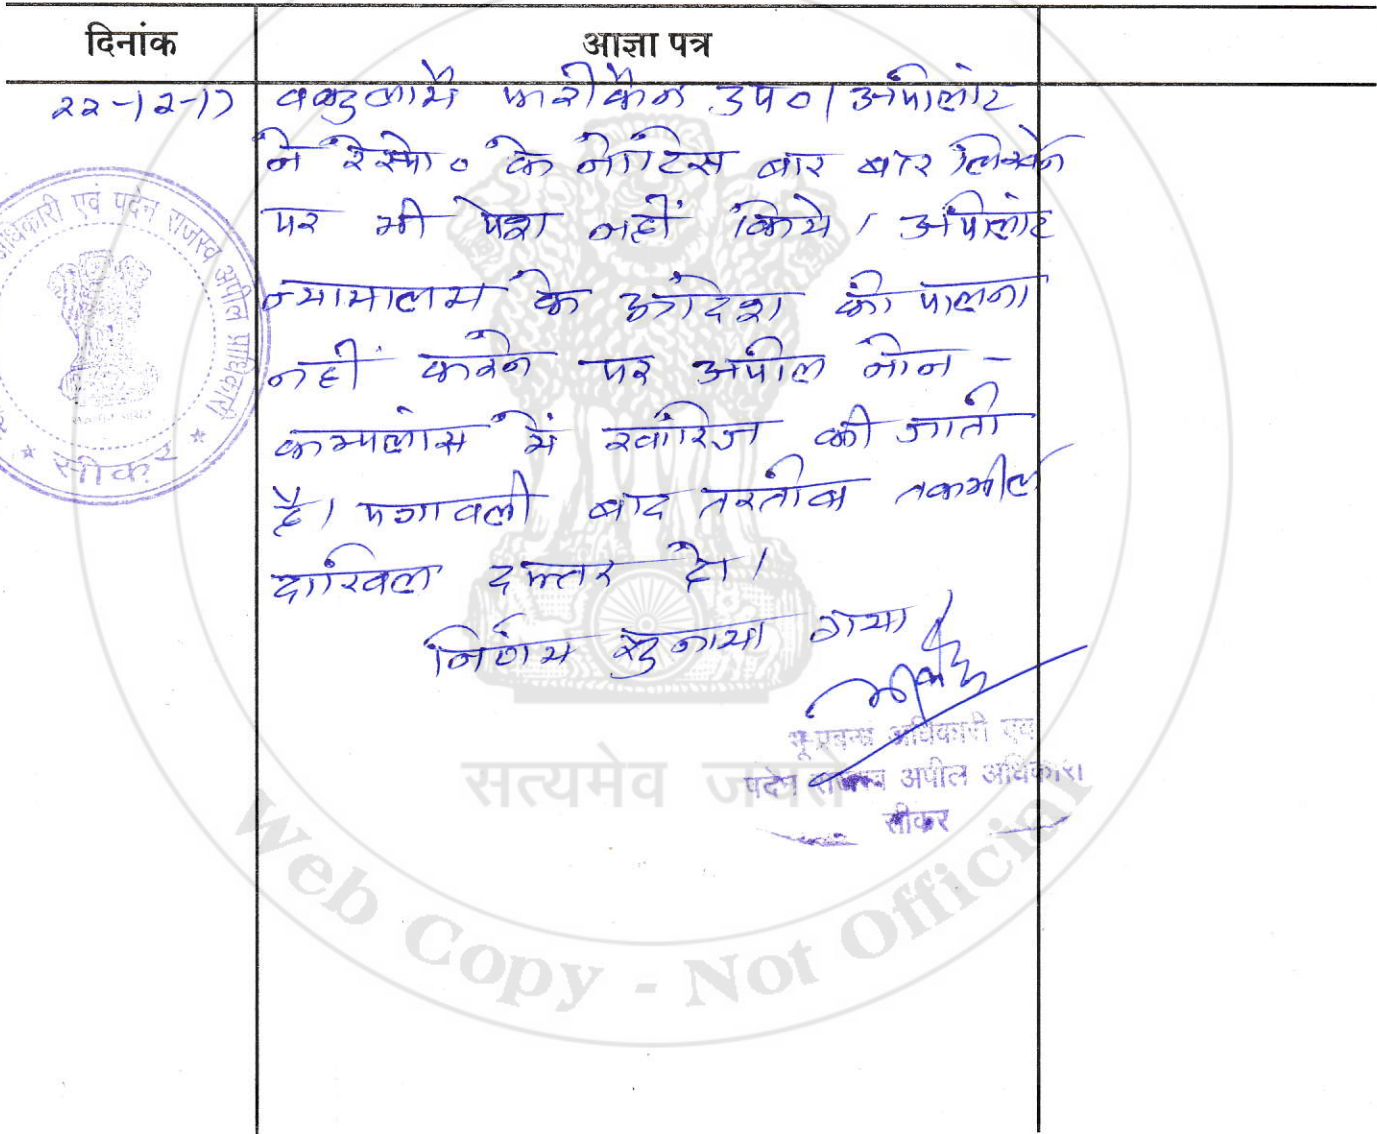 दिनांक
आज्ञा पत्र
२२-१२-१७
वकुलायै फरीकैन उप०। अपीलांट
ने रेस्पो० के नोटिस बार बार लिखने
पर भी पेश नहीं किये। अपीलांट
न्यायालय के आदेश की पालना
नहीं करने पर अपील नोन -
कम्पलांस में खारिज की जाती
है। पत्रावली बाद तरतीब तकमील
दाखिल दफ्तर हो।
निर्णय सुनाया गया।
भू-प्रबन्ध अधिकारी एवं
पदेन राजस्व अपील अधिकारी
सीकर
अधिकारी एवं पदेन राजस्व अपील प्राधिकारी
* सीकर *
सत्यमेव जयते
Web Copy - Not Official